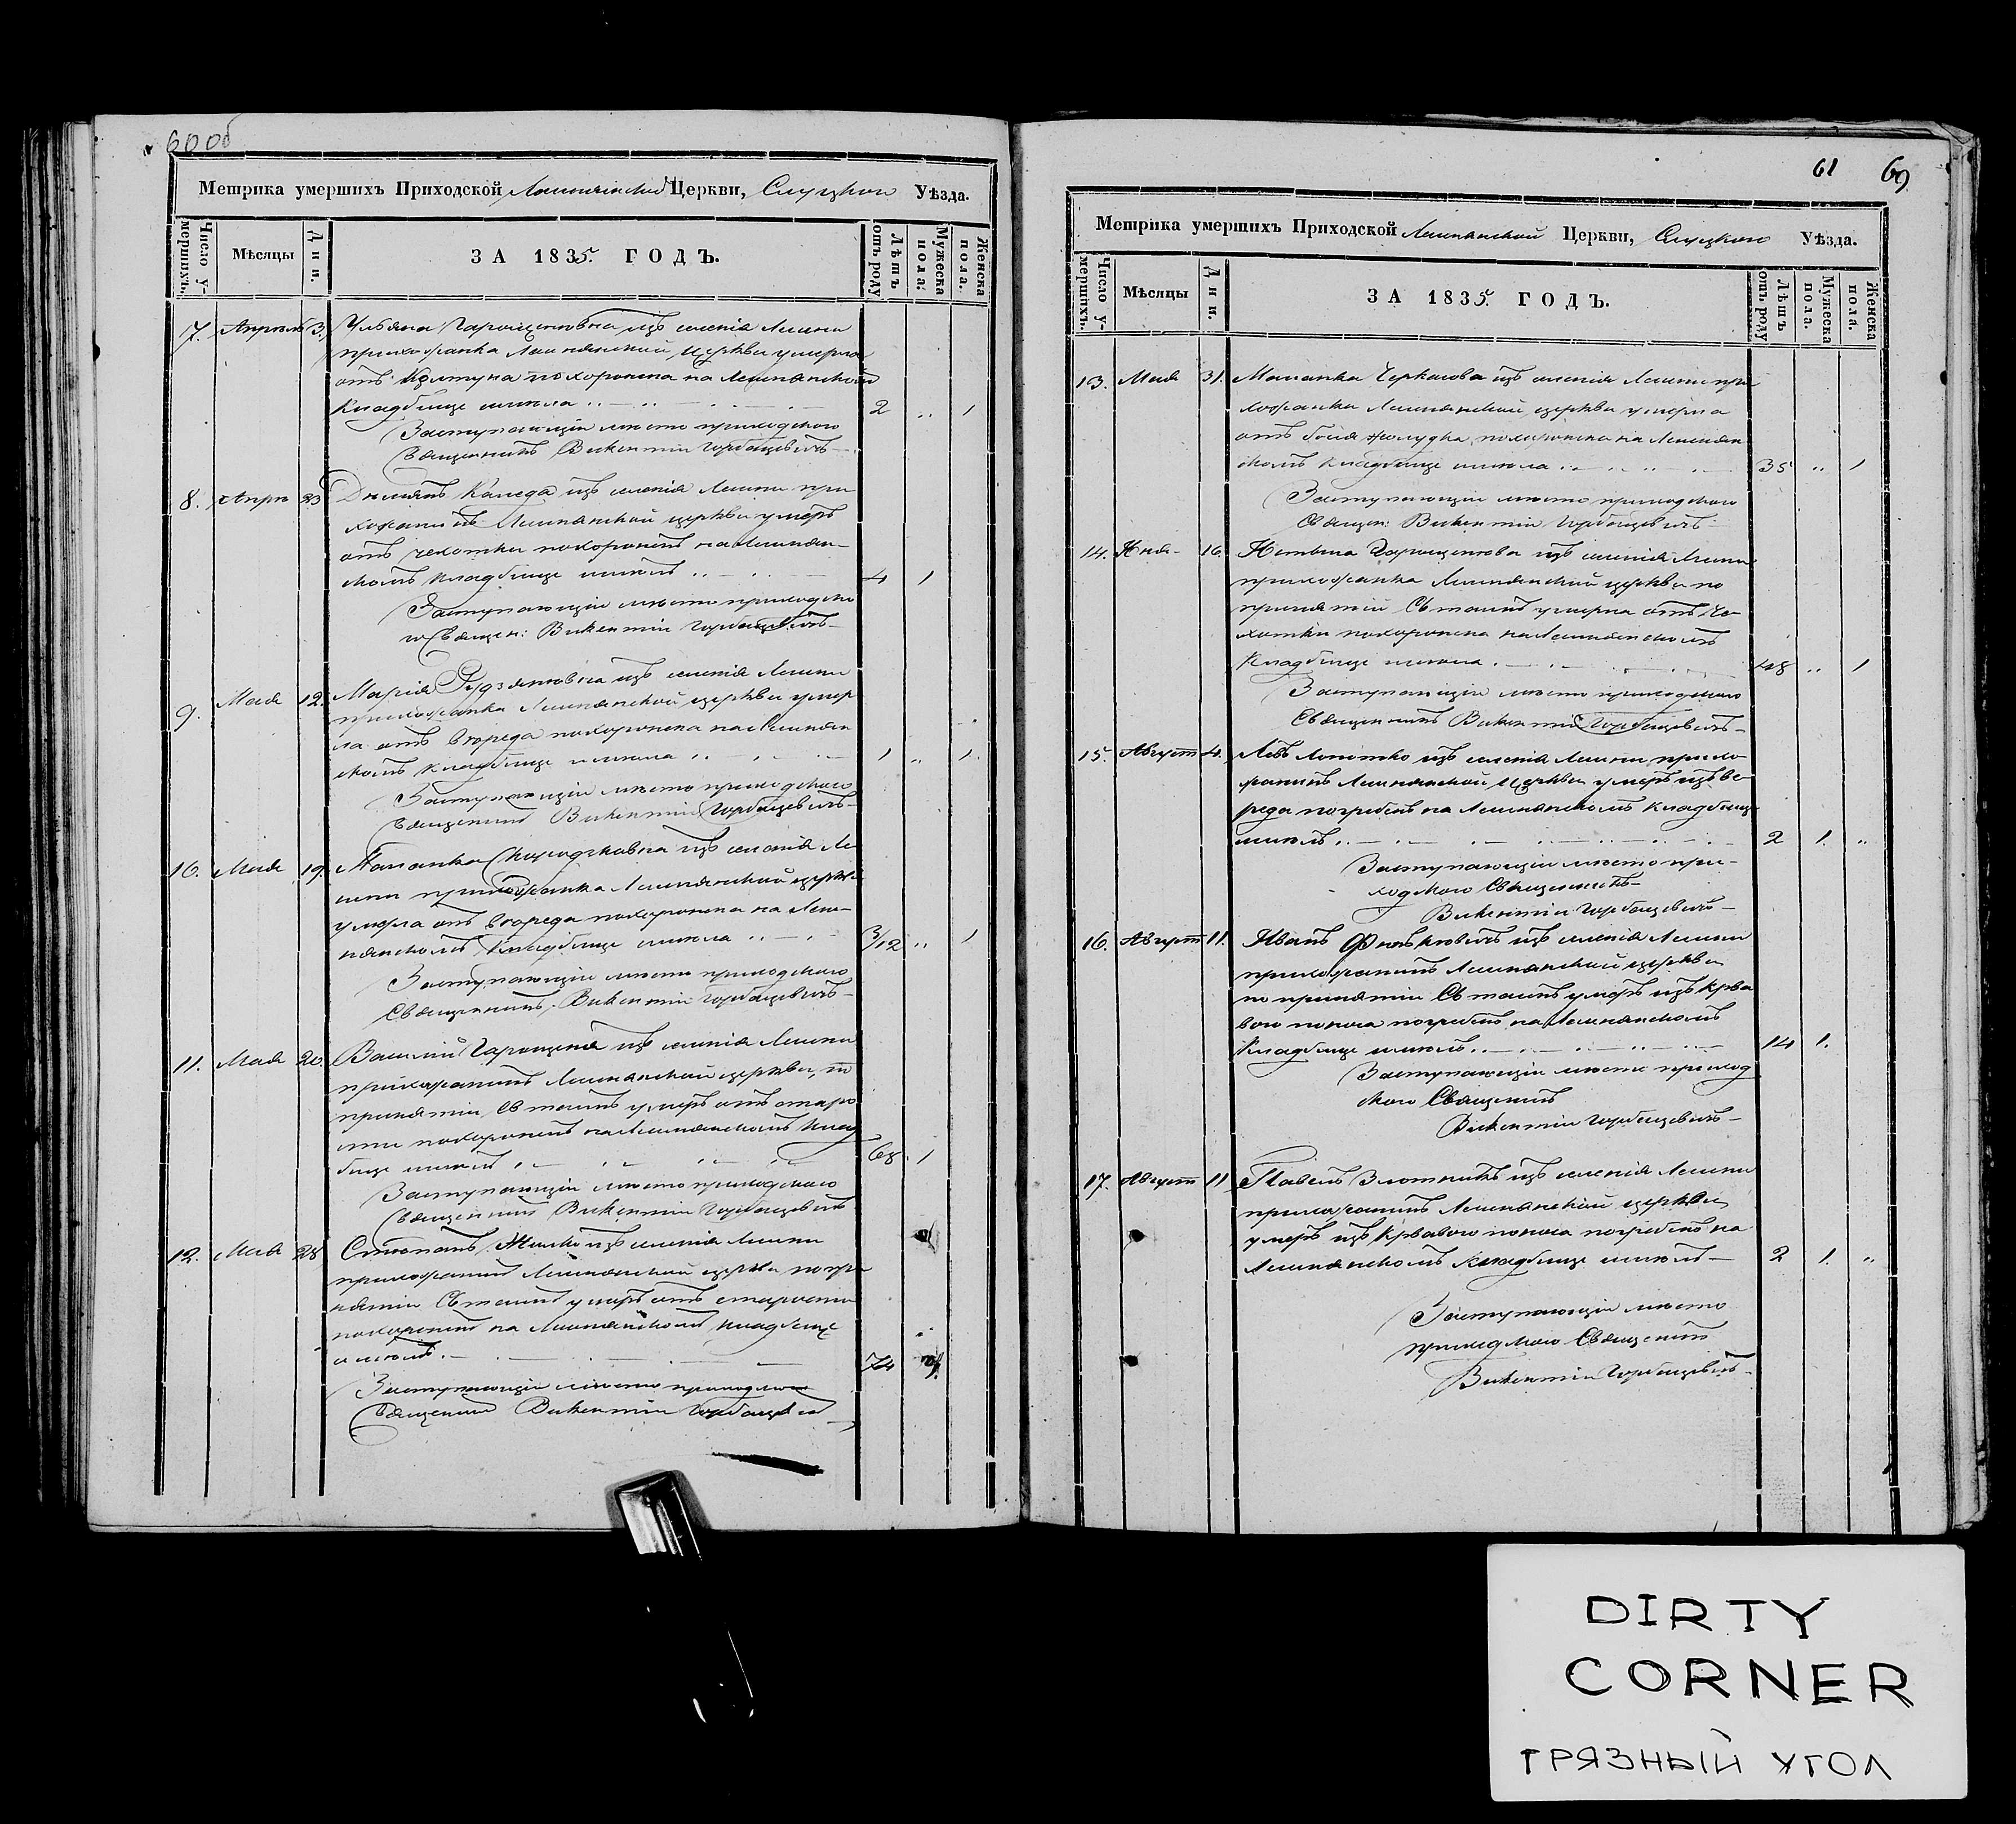 60 об
Метрика умершихъ Приходской Церкви, Слуцкого Уѣзда.
Число умершихъ.
Мѣсяцы
Дни.
ЗА 1835. ГОДЪ.
Лѣтъ отъ роду
Мужеска пола.
Женска пола.
7. Апрель 3. Ульяна Гарощеновна изъ имѣнія Лешни
прихожанка Лешнянской Церкви умерла
отъ Колтуна похоронена на Лешнянском
Кладбище 2 .. 1
Заступающій мѣсто приходского
Священникъ Викентій Горбацевичъ
8. Апрл 23 Каледа изъ имѣнія Лешни при
хожанинъ Лешнянской церкви умеръ
отъ чехотки похороненъ на Лешнян-
скомъ кладбище 4 1
Заступающій мѣсто приходско
го Священ: Викентій Горбацевичъ
9. Мая 12. Марія изъ имѣнія Лешни
прихожанка Лешнянской церкви умер
ла отъ вереда похоронена на Лешнян
скомъ кладбище 1 .. 1.
Заступающій мѣсто приходского
Священникъ Викентій Горбацевичъ
10. Мая 19. изъ имѣнія Ле
шни прихожанка Лешнянской церкви
умерла отъ вереда похоронена на Леш-
нянскомъ Кладбище 3/12 .. 1
Заступающій мѣсто приходского
Священникъ Викентій Горбацевичъ
11. Мая 20. Василій Гарощеня изъ имѣнія Лешни
прихожанинъ Лешнянской церкви, по
принятіи Св таинъ умеръ отъ старо
сти похороненъ на Лешнянскомъ клад
бище 68. 1
Заступающій мѣсто приходского
Священникъ Викентій Горбацевичъ
12. Мая 28 Стѣпанъ изъ имѣнія Лешни
прихожанинъ Лешнянской церкви по при
нятіи Св таинъ умеръ отъ старости
похороненъ на Лешнянскомъ кладбище
74
Заступающій мѣсто приходского
Священникъ Викентій Горбацевичъ
61 69
Метрика умершихъ Приходской Лешнянской Церкви, Слуцкого Уѣзда.
Число умершихъ.
Мѣсяцы
Дни.
ЗА 1835. ГОДЪ.
Лѣтъ отъ роду
Мужеска пола.
Женска пола.
13. Мая 31. Маланка Черкасова изъ имѣнія Лешни при
хожанка Лешнянской церкви умерла
отъ боля жолудка, похоронена на Лешнян
скомъ кладбище 35 .. 1
Заступающій мѣсто приходского
Священ: Викентій Горбацевичъ
14. 16. Гарощенова изъ имѣнія Лешни
прихожанка Лешнянской церкви по
принятіи Св таинъ умерла отъ че-
хотки похоронена на Лешнянскомъ
Кладбище 48 .. 1
Заступающій мѣсто приходского
Священникъ Викентій Горбацевичъ
15. Август 4. Левъ Лопотко изъ имѣнія Лешни, прихо
жанинъ Лешнянской Церкви умеръ изъ ве
реда погребенъ на Лешнянскомъ кладбище
2 1. ..
Заступающій мѣсто при-
ходского Священникъ
Викентій Горбацевичъ
16. Август 11. Иванъ изъ имѣнія Лешни
прихожанинъ Лешнянской церкви
по принятіи Св таинъ умеръ изъ крва
вого поноса погребенъ на Лешнянскомъ
Кладбище 14 1.
Заступающій мѣсто приход
ского Священникъ
Викентій Горбацевичъ
17. Август 11 Павелъ Злотникъ изъ имѣнія Лешни
прихожанинъ Лешнянской церкви
умеръ изъ Крвавого поноса погребенъ на
Лешнянскомъ Кладбище 2 1. ..
Заступающій мѣсто
приходского Священникъ
Викентій Горбацевичъ
DIRTY
CORNER
ГРЯЗНЫЙ УГОЛ